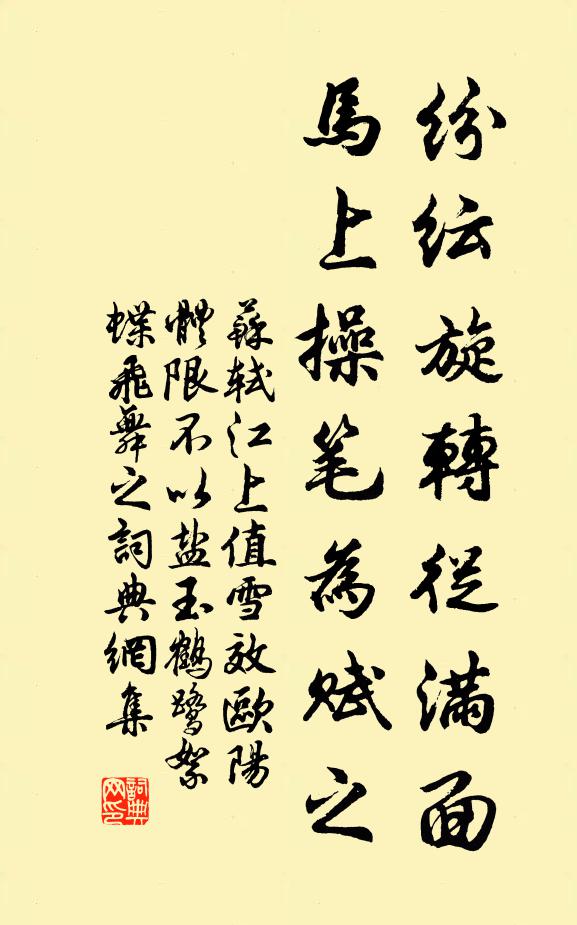 紛紜旋轉從滿面
馬上操笔為賦之
蘇軾江上值雪效歐陽
體限不以盐玉鶴鷺絮
蝶飛舞之詞典網集
詞典网印